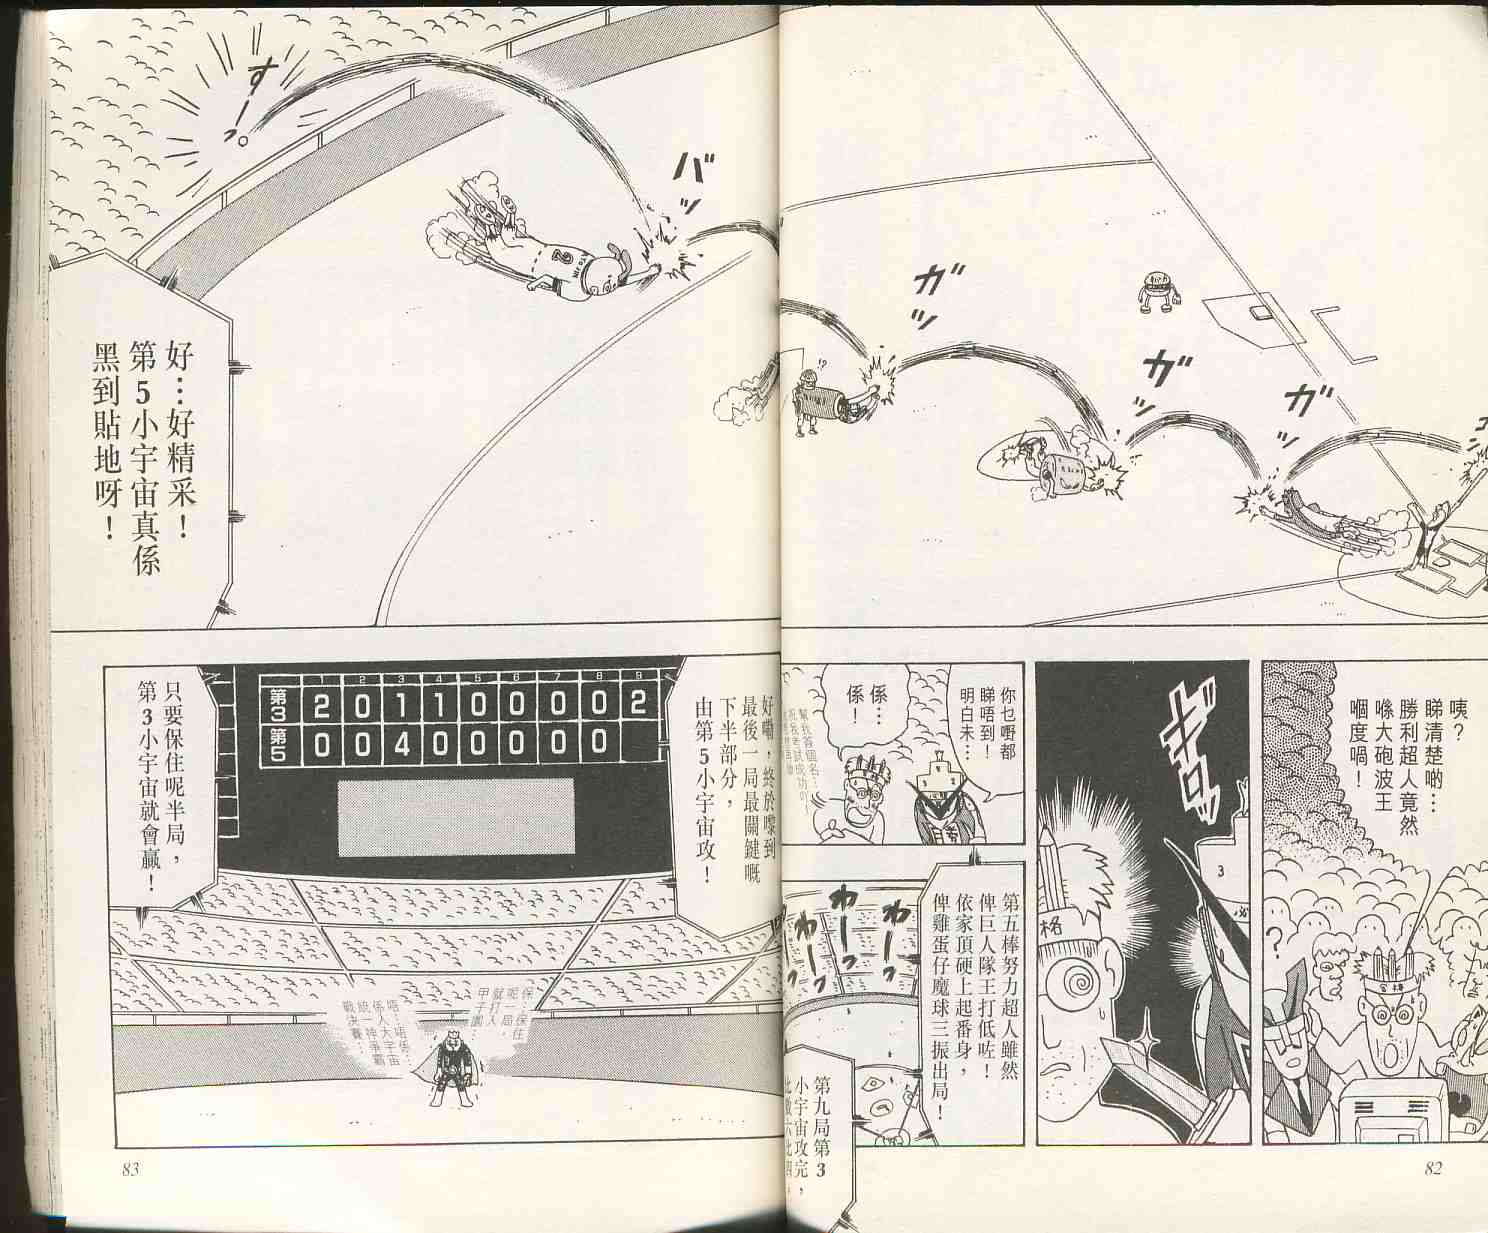 ガッ
ガッ
ガッ
バッ
すーっ
2
!?
好…好精采！
第5小宇宙真係
黑到貼地呀！
咦？
睇清楚啲…
勝利超人竟然
喺大砲波王
嗰度喎！
?
合格
ギロッ
3
格
你乜嘢都
睇唔到！
明白未…
係…
係！
第五棒努力超人雖然
俾巨人隊王打低咗！
依家頂硬上起番身，
俾雞蛋仔魔球三振出局！
わーっ
わーっ
わーっ
第九局第3
小宇宙攻完，
比數六比四，
82
好嘞，終於嚟到
最後一局最關鍵嘅
下半部分，
由第5小宇宙攻！
1 2 3 4 5 6 7 8 9
第3 2 0 1 1 0 0 0 0 2
第5 0 0 4 0 0 0 0 0
只要保住呢半局，
第3小宇宙就會贏！
保…保住
呢一局，
就打入
甲子園…
唔…唔係…
係入大宇宙
統一神爭霸
戰決賽…
83